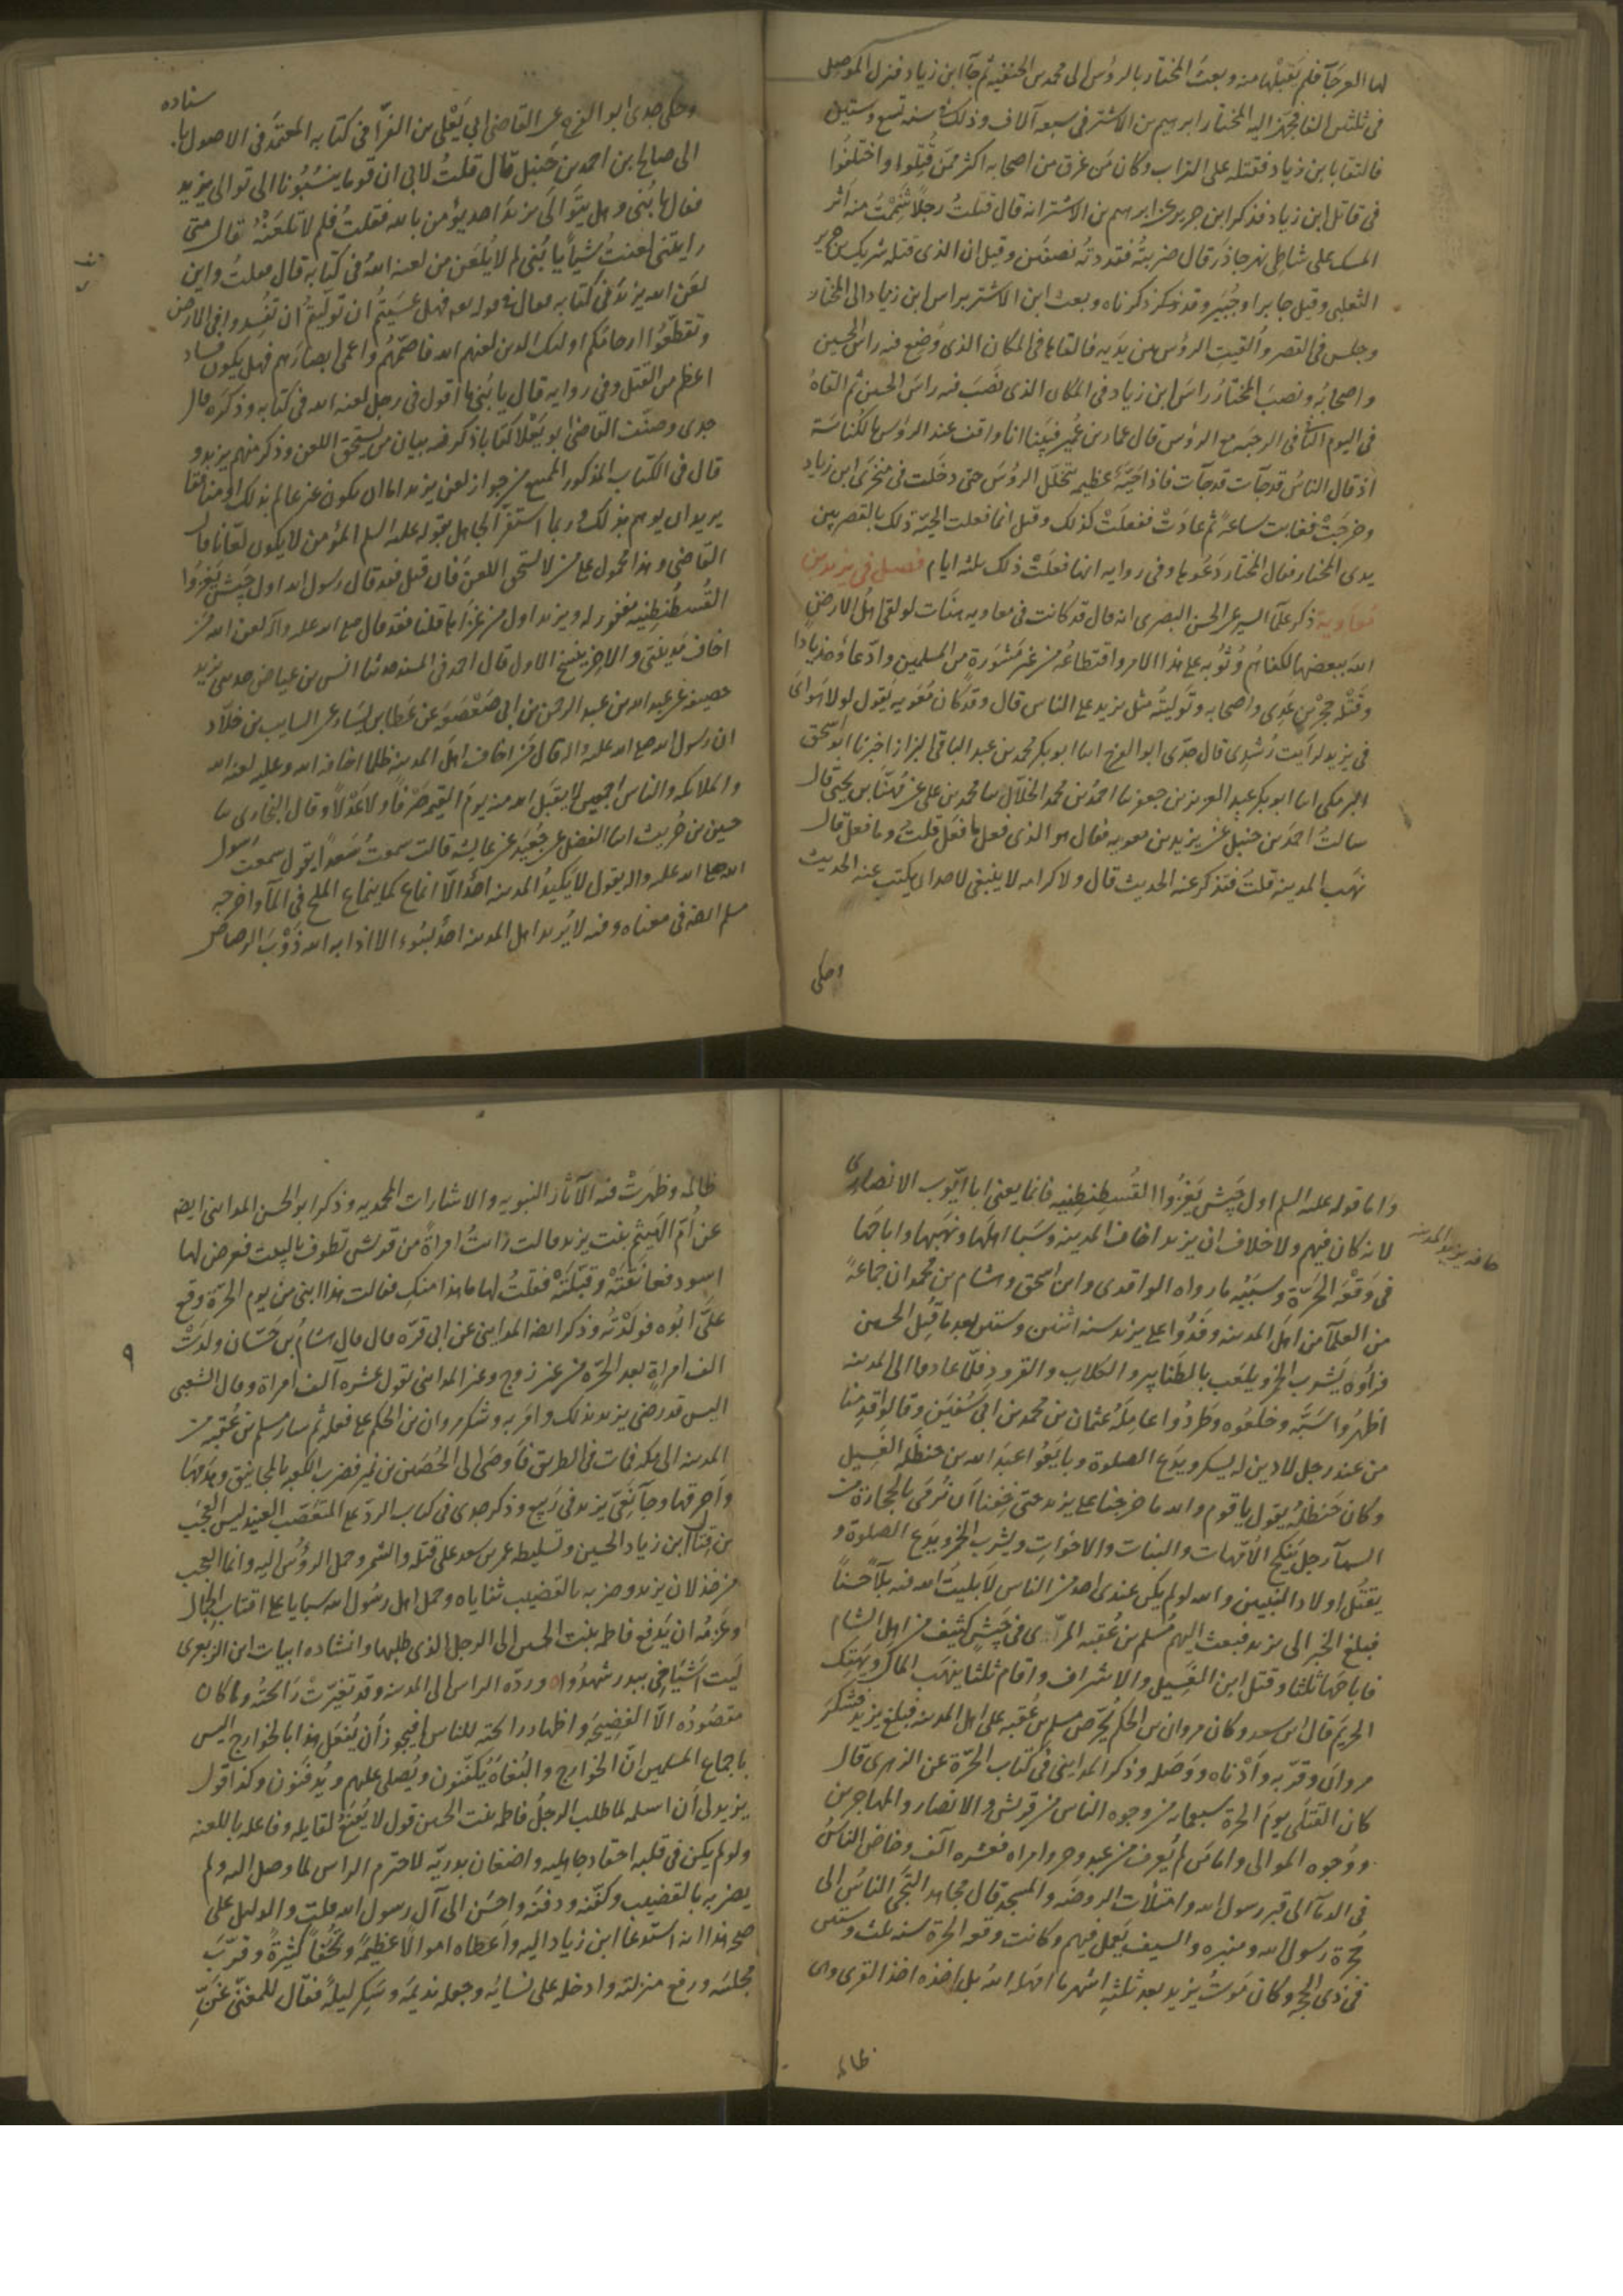 لها العرجآ فلم يقبلها منه وبعث المختار بالرؤس الى محمد بن الحنفية ثم جآ ابن زياد فنزل الموصل
فى ثلثين الفا فجهز اليه المختار ابرهيم بن الاشتر فى سبعة آلاف وذلك فى سنه تسع وستين
فالتقا بابن زياد فقتله على الزاب وكان من غرق من اصحابه اكثر ممن قُتِلوا واختلفوا
فى قاتل ابن زياد فذكر ابن جرير عن ابرهيم بن الاشتر انه قال قتلتُ رجلاً شممتُ منه اثر
المسك على شاطى نهر جاذر قال ضربتُه فقددتُه نصفين وقيل ان الذى قتله شريك بن جرير
الثعلبى وقيل جابر اوجبير وقد ذكرناه وبعث ابن الاشتر براس ابن زياد الى المختار
وجلس فى القصر واُلقيت الرؤس بين يديه فالقاها فى المكان الذى وُضع فيه راس الحسين
واصحابه ونصب المختار راس ابن زياد فى المكان الذى نصب فيه راس الحسين ثم القاهُ
فى اليوم الثانى فى الرحبة مع الرؤس قال عمار بن عُمير فبينا انا واقف عند الرؤس بالكُناسَة
اذ قال الناس قد جآت قد جآت فاذا حيّة عظيمه تتخلل الرؤسَ حتى دخلت فى منخرى ابن زياد
وخرجَتْ فغابت ساعةً ثم عادَتْ ففعلَتْ كذلك وقيل انما فعلت الحيّة ذلك بالقصر بين
يدى المختار فقال المختار دَعُوها وفى رواية انها فعلَتْ ذلك ثلثه ايام فصل فى يزيد بن
معاوية ذكر علمآ السير عن الحسن البصرى انه قال قد كانت فى معاويه هنّات لو لقى اهلُ الارضِ
الله ببعضها لكفاهُم وُثُوبه على هذا الامر واقتطاعُه من غير مَشوَرة من المسلمين وادّعاؤه زيادا
وقتلُه حُجْرَ بن عَدى واصحابه وتَوليتُه مثل يزيد على الناس قال وقد كان مُعَويه يقول لولا هَواىَ
فى يزيد لرايت رُشدى قال جدّى ابو الفرج انبا ابوبكر محمد بن عبد الباقى البزاز اخبرنا ابو اسحق
البرمكى انبا ابو بكر عبد العزيز بن جعفر نبا احمدُ بن محمد الخلّال نبا محمد بن على عن مُهَنَّا بن يحيى قال
سالتُ احمدَ بن حنبل عن يزيد بن معويه فقال هو الذى فعل ما فعل قلتُ وما فعل قال
نهب المدينه قلتُ فتذكر عنه الحديث قال ولا كرامه لا ينبغى لاحد ان يكتب عنه الحديث
وحكى
وحكى جدى ابو الفرج عن القاضى ابى يَعْلى بن الفرّا فى كتابه المعتمَد فى الاصول باسناده
الى صالح بن احمد بن حَنبل قال قلتُ لابى ان قوما ينسُبُونا الى توالى يزيد
فقال يا بُنى وهل يتوالَى يزيدَ احد يؤمن بالله فقلتُ فلم لا تلعَنُه فقال متى
رايتَنى لعنتُ شيأ يا بُنى لم لا يُلعَن من لعنه اللهُ فى كتابه قال فقلتُ واين
لعَن الله يزيدَ فى كتابه فقال فى قوله تعالى فهل عَسَيتُم ان تولّيتُم ان تُفسِدوا فى الارض
وتُقطّعُوا ارحامكم اولئك الذين لعنهم الله فاصمّهُم واعمى ابصارَهم فهل يكون فساد
اعظم من القتل وفى رواية قال يا بُنى ما اقول فى رجل لعنه الله فى كتابه وذكره قال
جدى وصنّف القاضى ابو يَعْلا كتابا ذكر فيه بيان من يستحق اللعن وذكر منهم يزيد و
قال فى الكتاب المذكور الممتنع من جواز لعن يزيد اما ان يكون غير عالم بذلك او منافقا
يريد ان يوهم بذلك وربما استفزّ الجاهل بقوله عليه السلم المؤمن لا يكون لعّانا قال
القاضى وهذا محمول على من لا يستحق اللعن فان قيل فقد قال رسول الله اول جيش يَغزُوا
القُسطُنطِنيه مغفور له ويزيد اول من غزَاها قلنا فقد قال صلى الله عليه وآله لعن الله من
اخاف مَدينتى والاخير ينسخ الاول قال احمد فى المسند حدثنا انس بن عياض حدثنى يزيد بن
خصيفه عن عبد الله بن عبد الرحمن بن ابى صَعْصَعَة عن عَطا بن يسار عن السايب بن خلّاد
ان رسول الله صلى الله عليه واله قال من اخاف اهل المدينه ظلما اخافه الله وعليه لعنه الله
والملائكه والناس اجمعين لا يقبل الله منه يوم القيمه صَرْفاً ولا عَدْلاً وقال البخارى نبا
حسين بن حُريث انبا الفضل عن جُعَيد عن عايشه قالت سمعتُ سَعداً يقول سمعت رسول
الله صلى الله عليه واله يقول لا يكيدُ المدينه احدٌ الّا انماع كما ينماع الملح فى المآ واخرجه
مسلم ايضا فى معناه وفيه لا يُريد اهل المدينه احدٌ بسُوء الا اذابه الله ذَوْبَ الرصاص
واما قوله عليه السلم اول جَيش يَغزُوا القُسطنطنِيه فانما يعنى ابا ايّوب الانصارى
لانه كان فيهم ولا خلاف ان يزيد اخاف المدينه وسَبَا اهلَها ونهبها واباحَها
فى وَقعَة الحَرّة وسببُه ما رواه الواقدى وابن اسحق وهشام بن محمد ان جماعةً
من العلمآ من اهل المدينه وفَدُوا على يزيد سنه اثنتين وستين بعد ما قُتل الحسين
فراوه يَشرب الخمر ويلعَب بالطنابير والكلاب والقرود فلمّا عادوا الى المدينه
اظهرُوا سَبَّه وخلَعُوه وطردُوا عامِلَهُ عثمان بن محمد بن ابى سُفيَن وقالوا قدِمنا
من عند رجل لا دين له يسكر ويدَع الصلوة وبايَعُوا عبدَ الله بن حنظَله الغَسيل
وكان حَنظَلةُ يقول ياقوم والله ما خرجنا على يزيد حتى خِفنا ان نُرمَى بالحجارة من
السمآ رجل يَنكِح الاُمّهات والبنات والاخواتِ ويشرب الخمر ويدَع الصلوة و
يقتُل اولادَ النبيين والله لو لم يكن عندى احد من الناس لأبليتُ الله فيه بلآً حسناً
فبلغ الخبر الى يزيد فبعث اليهم مُسلم بن عُقبه المرّى فى جَيش كثيف من اهل الشام
فاباحَها ثلثا وقتل ابن الغسيل والاشراف واقام ثلثا ينهَب المال ويَهتِك
الحريم قال ابن سعد وكان مروان بن الحكم يُحَرّض مسلم بن عُقبه على اهل المدينه فبلغ يزيد فشكر
مروانَ وقرّبه وأدْناه ووَصَله وذكر المداينى فى كتاب الحَرّة عن الزهرى قال
كان القتلَى يومَ الحرة سبعمايه من وجوه الناس من قريش والانصار والمهاجرين
ووُجوه الموالى واما مَن لم يُعرف من عبد وحر وامراه فعشره آلف وخاض الناسُ
فى الدمآ الى قبر رسول الله وامتلأت الروضه والمسجد قال مجاهد التجَى الناسُ الى
حُجرة رسول الله ومنبره والسيف يَعمل فيهم وكانت وقعه الحرة سنه ثلث وستين
فى ذى الحجه وكان مَوتُ يزيد بعد ثلثةِ اشهر ما امهله اللهُ بل اخذه اخذ القرى وهى
ظالمه
ظالمه وظهرتْ فيه الآثار النبويه والاشارات المحمديه وذكر ابو الحسن المداينى ايضا
عن اُمّ الهَيثم بنت يزيد قالت رَأيتُ امراةً من قريش تطوف بالبيت فعرض لها
اسود فعانَقَتْه وقبّلَتْه فقلتُ لها ما هذا منكِ فقالت هذا ابنى من يوم الحرّة وقع
علَىَّ ابُوه فولَدْتُه وذكر ايضا المداينى عن ابى قرّه قال قال هشامُ بن حَسّان ولدَتْ
الف امراةٍ بعد الحَرّة من غير زوج وغير المداينى يقول عشره آلف امراة وقال الشعبى
اليس قد رضى يزيد بذلك وامَر به وشكر مروان بن الحكم على فعله ثم سار مسلم بن عُقبه من
المدينه الى مكه فمات فى الطريق فأوصَى الى الحُصَين بن نُمير فضرب الكعبه بالمجانيق وهدَمَها
وأحرقها وجآ نَعْىُ يزيد فى رَبيع وذكر جدى فى كتاب الرد على المتعَصّب العنيد ليس العَجَب
من قتال ابن زياد الحسين وتسليطه عمر بن سعد على قتله والشمر وحمل الرؤس اليه وانما العجب
من خذلان يزيد وضربه بالقضيب ثناياه وحمل اهل رسُول الله سبايا على اقتاب الجمال
وعَزمُه ان يَدفع فاطمه بنت الحسين الى الرجل الذى طلبها وانشاده ابيات ابن الزبعرى
لَيت اَشيَاخى ببدر شهِدُوا وردّه الراس الى المدينه وقد تغيرّتْ رائحَتُه وما كان
مقصُودُه الّا الفضِيحَة واظهار رائحته للناس افيجوز اَن يُفعَل هذا بالخوارج اليس
باجماع المسلمين انّ الخوارج والبُغاة يُكفّنون ويُصلى عليهم ويُدفَنون وكذا قول
يزيد لى أن اسبيكم لما طلب الرجُل فاطمه بنت الحسين قول لا يُقنَع لقايله وفاعله باللعنه
ولو لم يكن فى قلبه احقاد جاهليه واضغان بدريّه لاحترم الراس لما وصل اليه ولم
يضربه بالقضيب وكفّنه ودفَنه واحسَن الى آل رسول الله قلت والدليل على
صحه هذا انه استدعا ابن زياد اليه واعطاه اموالا عظيمةً وتُحَفاً كثيرةً وقرّبَ
مجلسَه ورفع منزلتَه وادخله على نسايه وجعله نديمَه وسَكِر ليلةً فقال للمغنّى غَنّ